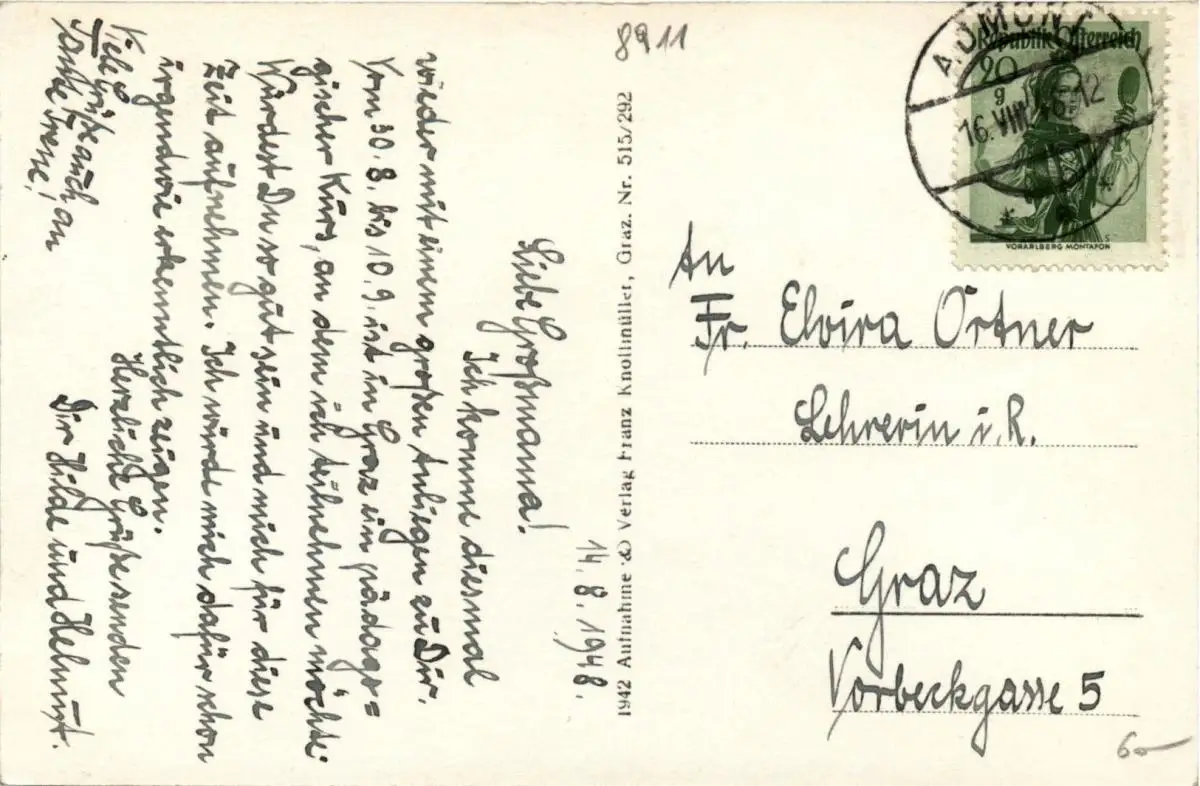 8911
14. 8. 1948.
Liebe Großmama!
Ich komme diesmal
wieder mit einem großen Anliegen zu Dir.
Vom 30. 8. bis 10. 9. ist in Graz ein pädago=
gischer Kurs, an dem ich teilnehmen möchte.
Würdest Du so gut sein und mich für diese
Zeit aufnehmen. Ich würde mich dafür schon
irgendwie erkenntlich zeigen.
Herzliche Grüße senden
Dir Hilde und Helmut.
Viele Grüße auch an
Tante Grete!
1942 Aufnahme & Verlag Franz Knollmüller, Graz. Nr. 515/292
ADMONT
16. VIII. 12
Republik Österreich
20
g
VORARLBERG MONTAFON
An
Fr. Elvira Ortner
Lehrerin i. R.
Graz
Vorbeckgasse 5
60